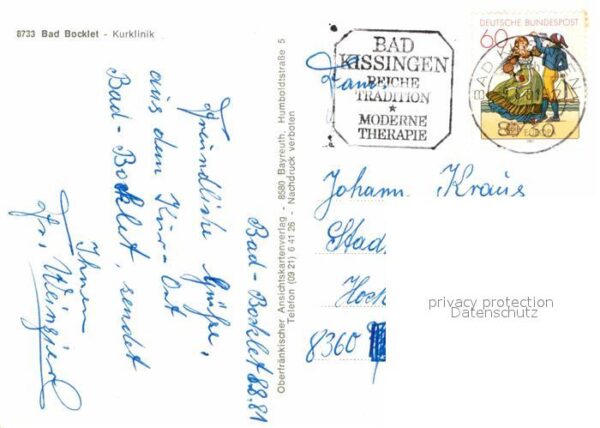 8733 Bad Bocklet - Kurklinik
Bad-Bocklet 8.8.81
Freundliche Grüße,
aus dem Kur-Ort
Bad-Bocklet, sendet
Ihnen
Oberfränkischer Ansichtskartenverlag - 8580 Bayreuth, Humboldtstraße 5
Telefon (09 21) 6 41 26 - Nachdruck verboten
BAD
KISSINGEN
REICHE
TRADITION
*
MODERNE
THERAPIE
DEUTSCHE BUNDESPOST
60
BAD
Fam.
Johann Kraus
Stad
Hoch
8360
privacy protection
Datenschutz